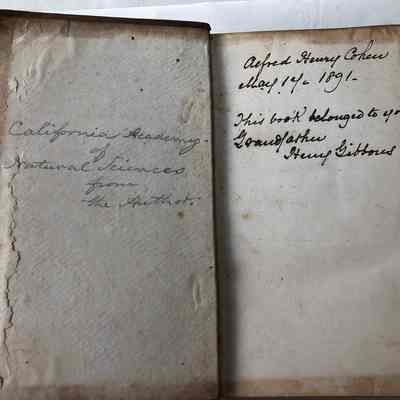 California Academy
of
Natural Sciences
from
the Author.
Alfred Henry Cohen
May 17, 1891-
This book belonged to yo
Grandfather
Henry Gibbons